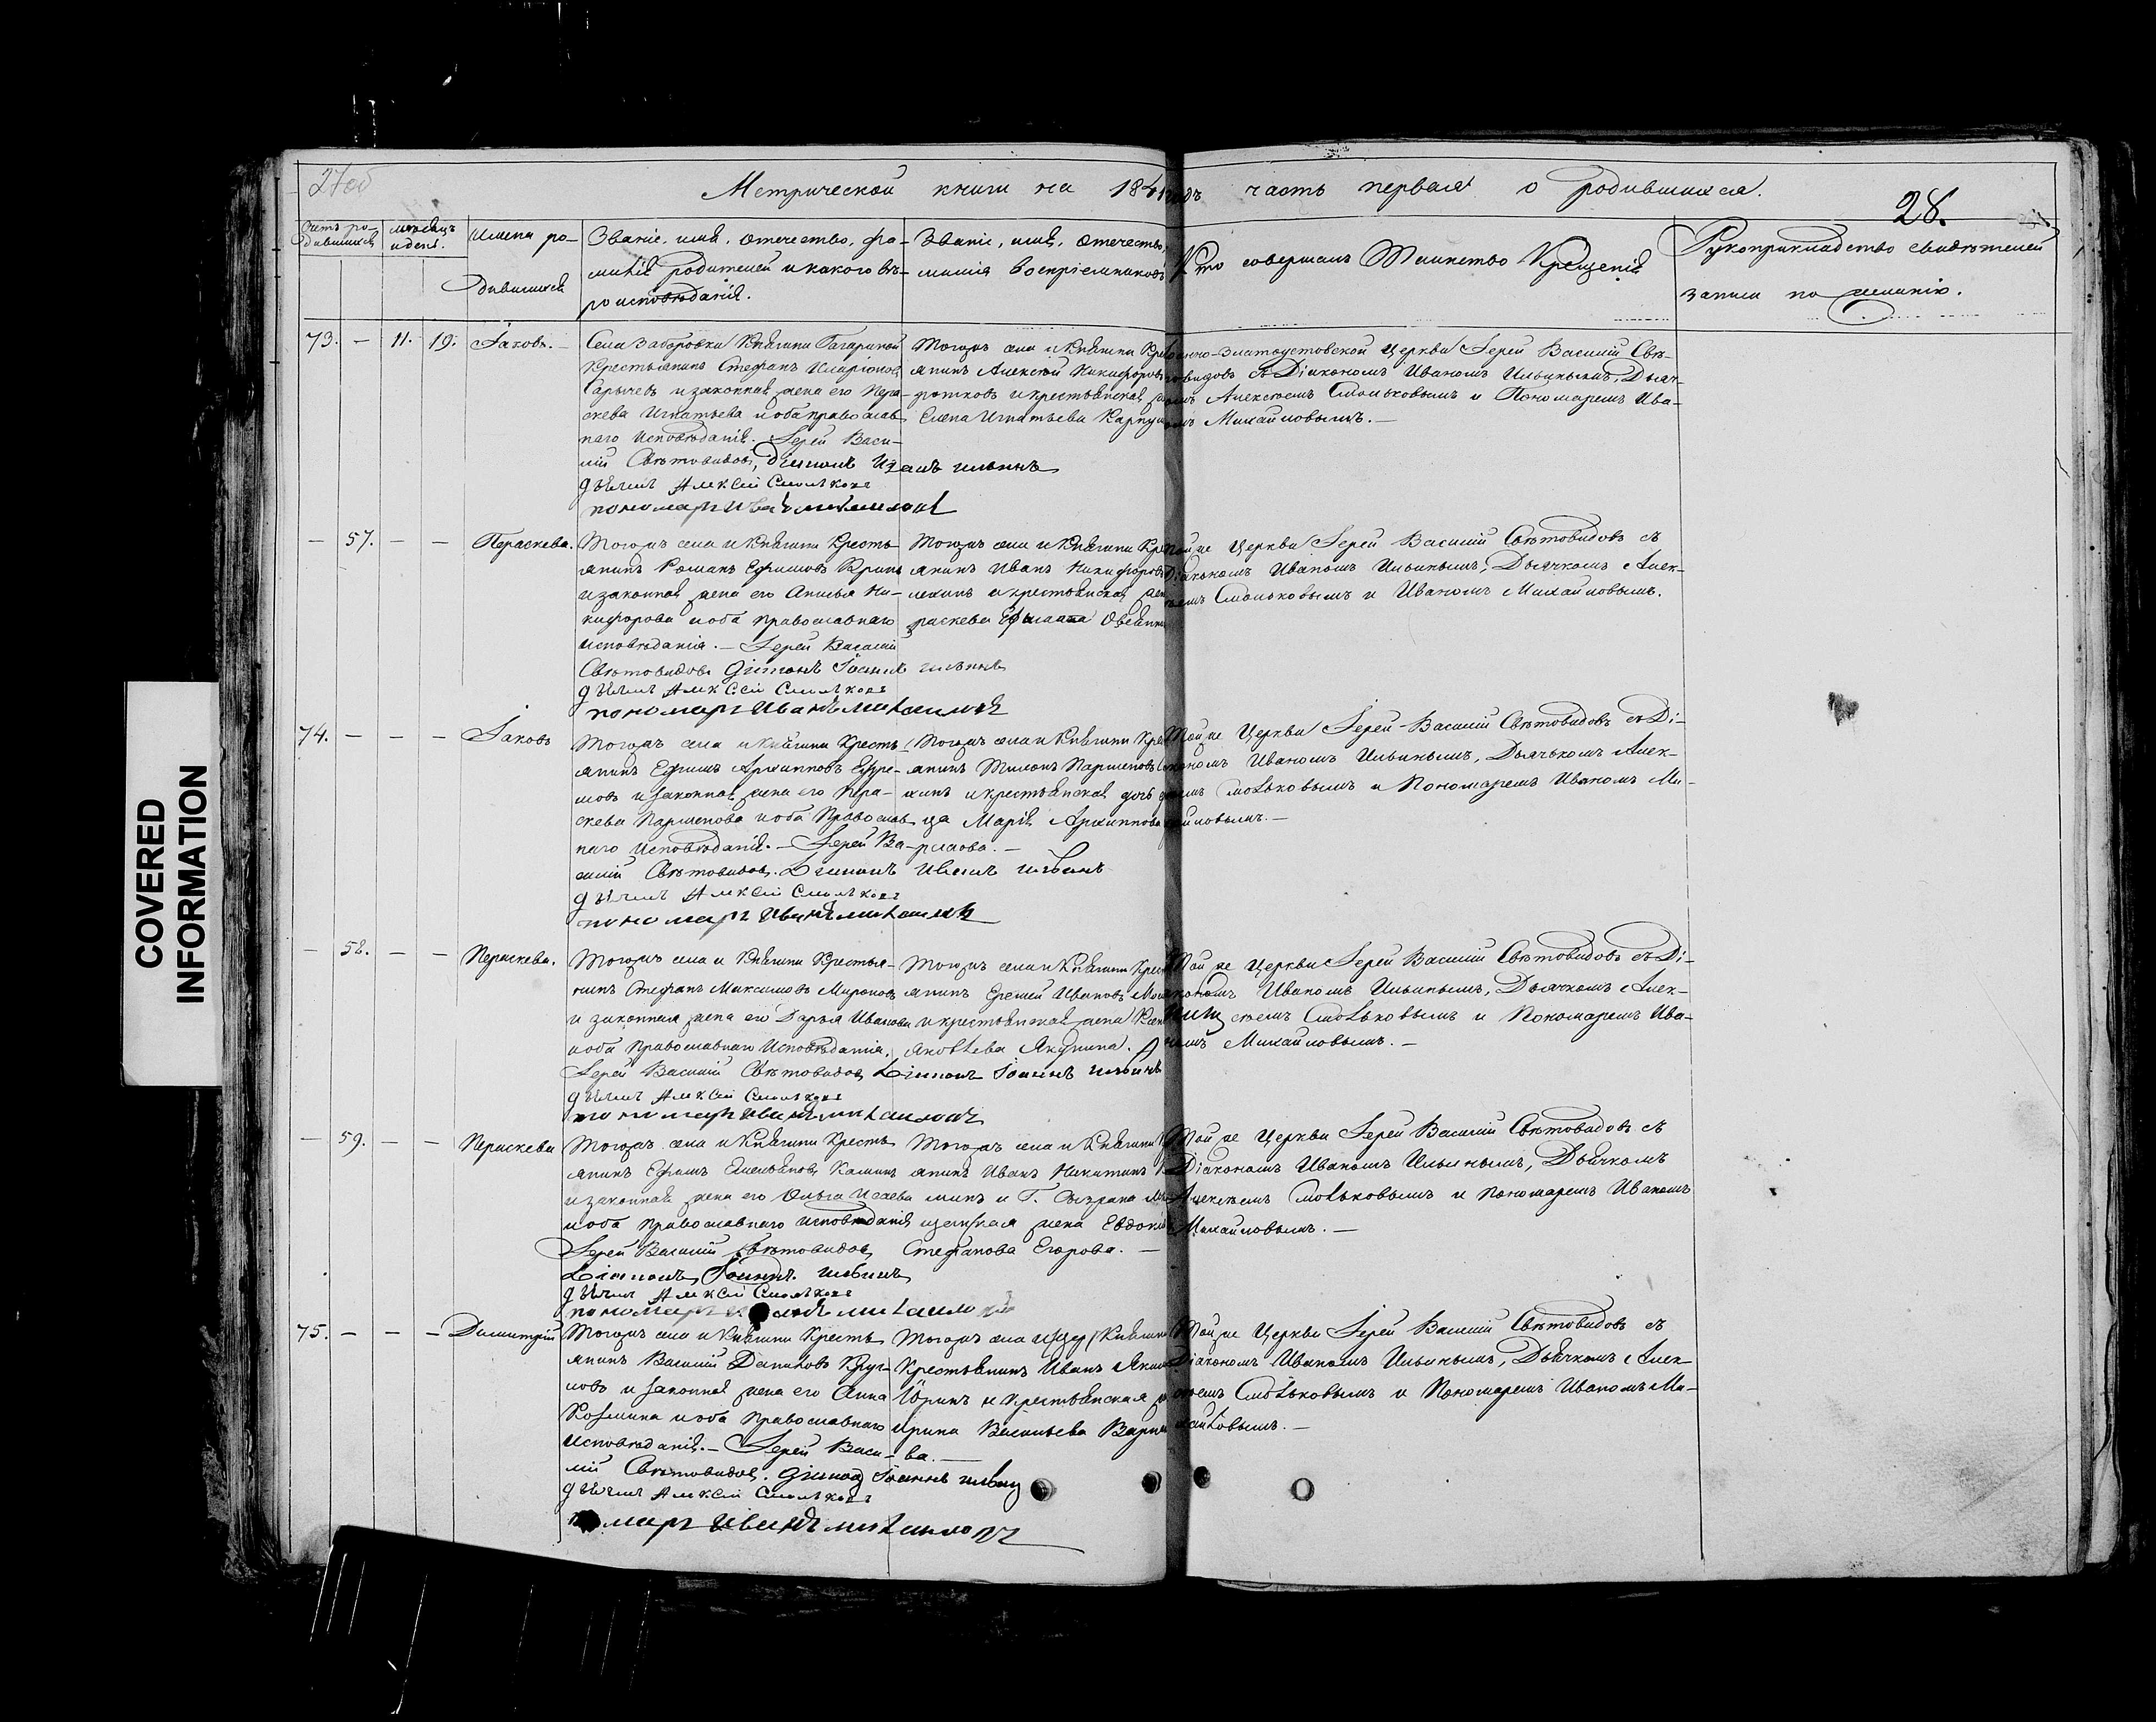 27об
Метрической книги на 1841 годъ часть первая о родившихся.
28.
Счетъ ро-
дившихся
Мѣсяцъ
и день.
Имена ро-
дившихся
Званіе, имя, отечество, фа-
милія родителей и какого вѣ-
роисповѣданія.
Званіе, имя, отечество,
милія воспріемниковъ
Кто совершалъ Таинство Крещенія
Рукоприкладство свидѣтелей
записи по желанію.
73. — 11. 19. Іаковъ.
Села Заборовки Княгини Гагариной
Крестьянинъ Стефанъ Иларіоновъ
Сарычевъ и законная жена его Пера-
скева Игнатьева и оба православ-
наго Исповѣданія. Іерей Васи-
лій Свѣтовидовъ, Діаконъ Иванъ Ильинъ
дьячекъ Алексѣй Смольковъ
пономарь Иванъ Михайловъ
Тогожъ села и Княгини Кре
янинъ Алексѣй Никифоровъ
ротковъ и крестьянская
Елена Игнатьева
Златоустовской Церкви Іерей Василій Свѣ-
товидовъ съ Діакономъ Иваномъ Ильинымъ, Дьяч-
комъ Алексѣемъ Смольковымъ и Пономаремъ Ива-
номъ Михайловымъ. —
— 57. — — Параскева.
Тогожъ села и Княгини Кресть-
янинъ Романъ Ефимовъ
и законная жена его Анисья Ни-
кифорова и оба православнаго
исповѣданія. — Іерей Василій
Свѣтовидовъ Діаконъ Іоаннъ Ильинъ
дьячекъ Алексѣй Смольковъ
пономарь Иванъ Михайловъ
Тогожъ села и Княгини Кре
янинъ Иванъ Никифоровъ
и крестьянская
раскева
Тойже Церкви Іерей Василій Свѣтовидовъ съ
Діакономъ Иваномъ Ильинымъ, Дьячкомъ Алек-
сѣемъ Смольковымъ и Иваномъ Михайловымъ.
74. — — — Іаковъ
Тогожъ села и Княгини Кресть
янинъ Ефимъ Архипповъ Ефре-
мовъ и законная жена его Пера-
скева Парменова и оба Православ
наго Исповѣданія. — Іерей Ва-
силій Свѣтовидовъ. Діаконъ Иванъ Ильинъ
дьячекъ Алексѣй Смольковъ
пономарь Иванъ Михайловъ
Тогожъ села и Княгини Кре
янинъ Парменовъ
и крестьянская дочь
ца Марія Архиппова
Тойже Церкви Іерей Василій Свѣтовидовъ съ Ді-
акономъ Иваномъ Ильинымъ, Дьячькомъ Алек-
сѣемъ Смольковымъ и Пономаремъ Иваномъ Ми-
хайловымъ. —
— 58. — — Параскева.
Тогожъ села и Княгини Крестья-
нинъ Стефанъ Максимовъ Мироновъ
и законная жена его Дарья Иванова
и оба Православнаго Исповѣданія.
Іерей Василій Свѣтовидовъ Діаконъ Іоаннъ Ильинъ
дьячекъ Алексѣй Смольковъ
пономарь Иванъ Михайловъ
Тогожъ села и Княгини Крес
янинъ Еремей Ивановъ
и крестьянская жена
Яковлева Якунина.
Тойже Церкви Іерей Василій Свѣтовидовъ съ Ді-
акономъ Иваномъ Ильинымъ, Дьячкомъ Алек-
сѣемъ Смольковымъ и Пономаремъ Ива-
номъ Михайловымъ. —
— 59. — — Параскева
Тогожъ села и Княгини Кресть
янинъ Ефимъ Емельяновъ Калинъ
и законная жена его Ольга Исаева
и оба православнаго исповѣданія
Іерей Василій Свѣтовидовъ
Діаконъ, Іоаннъ Ильинъ
дьячекъ Алексѣй Смольковъ
пономарь Михайловъ
Тогожъ села и Княгини
янинъ Иванъ Никитинъ
и Г. Сызрана
щанская жена Евдокія
Стефанова Егорова. —
Тойже Церкви Іерей Василій Свѣтовидовъ съ
Діакономъ Иваномъ Ильинымъ, Дьячкомъ
Алексѣемъ Смольковымъ и Пономаремъ Иваномъ
Михайловымъ. —
75. — — — Димитрій
Тогожъ села и Княгини Кресть
янинъ Василій Даниловъ Круг-
ловъ и законная жена его Анна
Козмина и оба Православнаго
Исповѣданія. — Іерей Васи-
лій Свѣтовидовъ. Діаконъ Іоаннъ Ильинъ
дьячекъ Алексѣй Смольковъ
Иванъ Михайловъ
Тогожъ села Княгини
Крестьянинъ Иванъ
Юринъ и крестьянская
Ирина Васильева
ва. —
Тойже Церкви Іерей Василій Свѣтовидовъ съ
Діакономъ Иваномъ Ильинымъ, Дьячкомъ Алек
сѣемъ Смольковымъ и Пономаремъ Иваномъ Ми-
хайловымъ. —
COVERED
INFORMATION